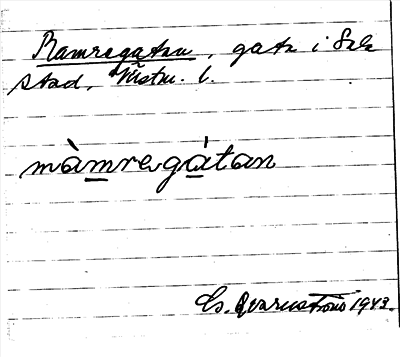 Ramregatan, gata i Sala
stad, Västm. l.
màmregátan
Es. Qvarnström 1943.